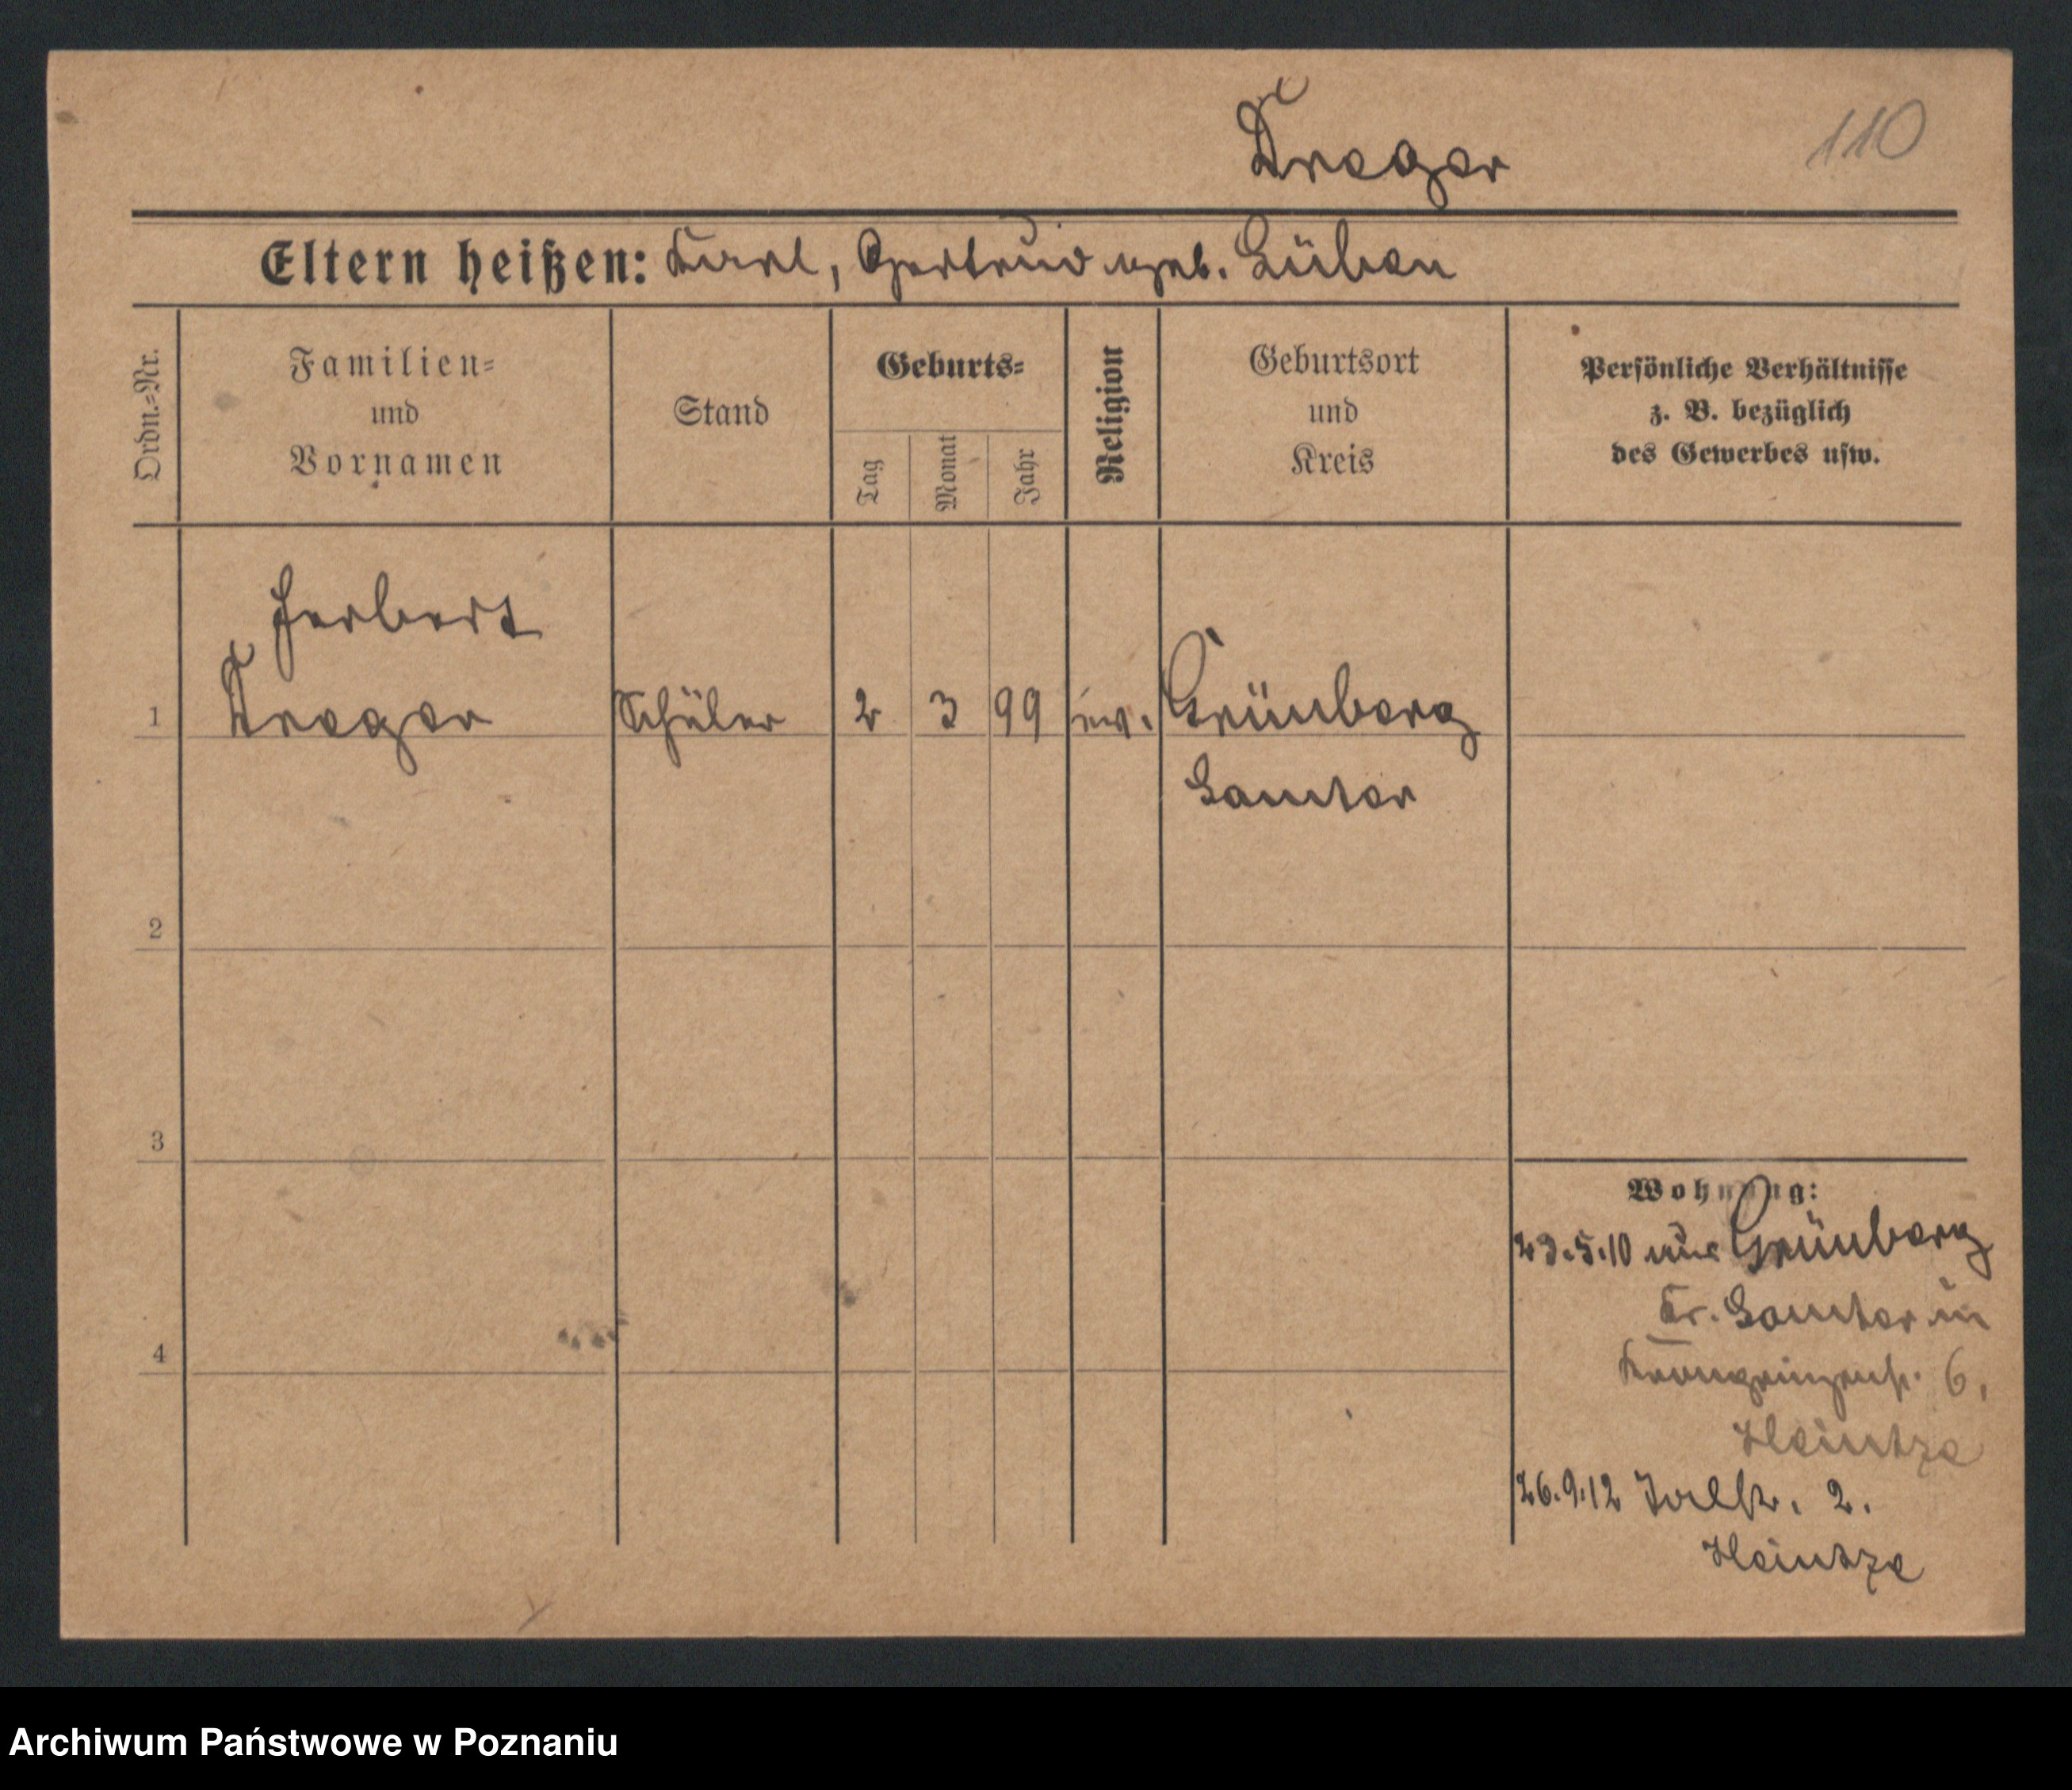 Dreger
110
Eltern heißen: Karl, Gertrud geb. Lüben
Ordn.=Nr.
Familien=
und
Vornamen
Stand
Geburts=
Tag
Monat
Jahr
Religion
Geburtsort
und
Kreis
Persönliche Verhältnisse
z. B. bezüglich
des Gewerbes usw.
Herbert
1 Dreger Schüler 2 3 99 ev. Grünberg
Samter
2
3
4
Wohnung:
23.5.10 aus Grünberg
Kr. Samter in
Kronprinzenstr. 6,
Heintze
26.9.12 2.
Heintze
Archiwum Państwowe w Poznaniu